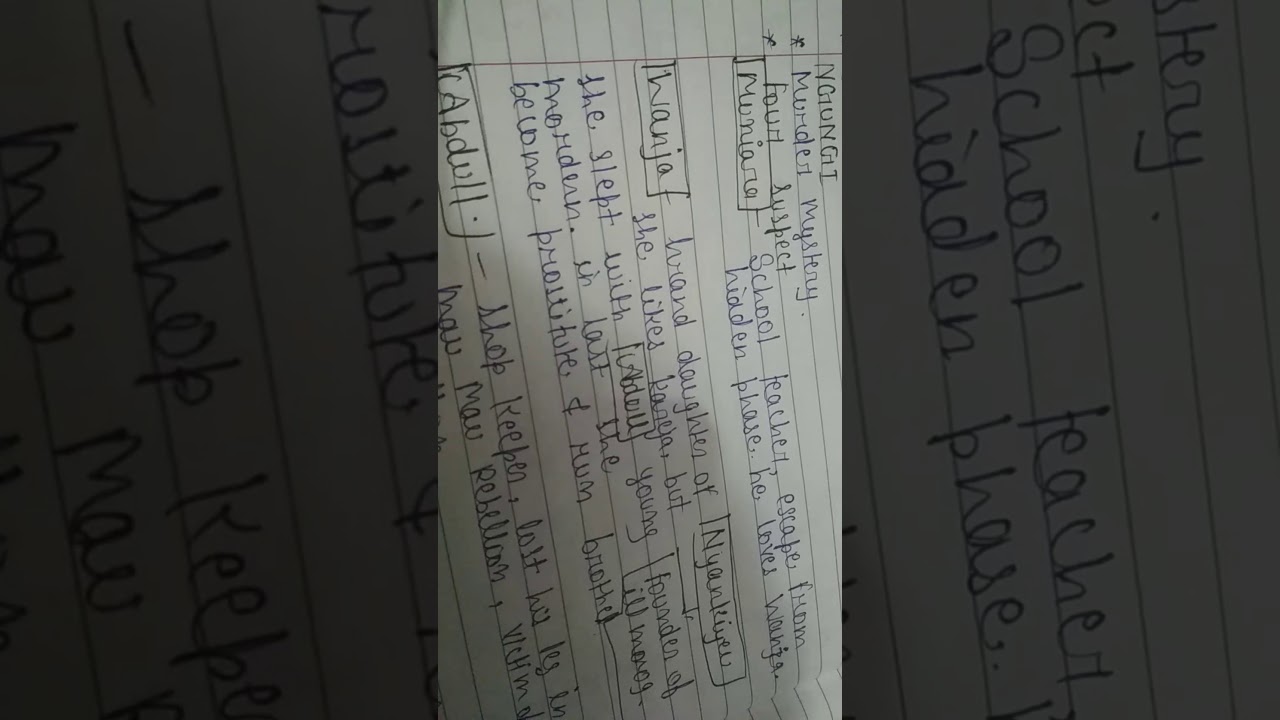 NGUNGI
* Murder mystery.
* Four suspect
Muniara School teacher, escape from
hidden phase. he loves wanja.
Wanja - Grand daughter of Nyankiyeu
she likes kareja, but founder of
she slept with Abdull young illmorog
mordern. in last the
become prostitute & run brothel
Abdull. - shop keeper, lost his leg in
mau mau rebellion, victim